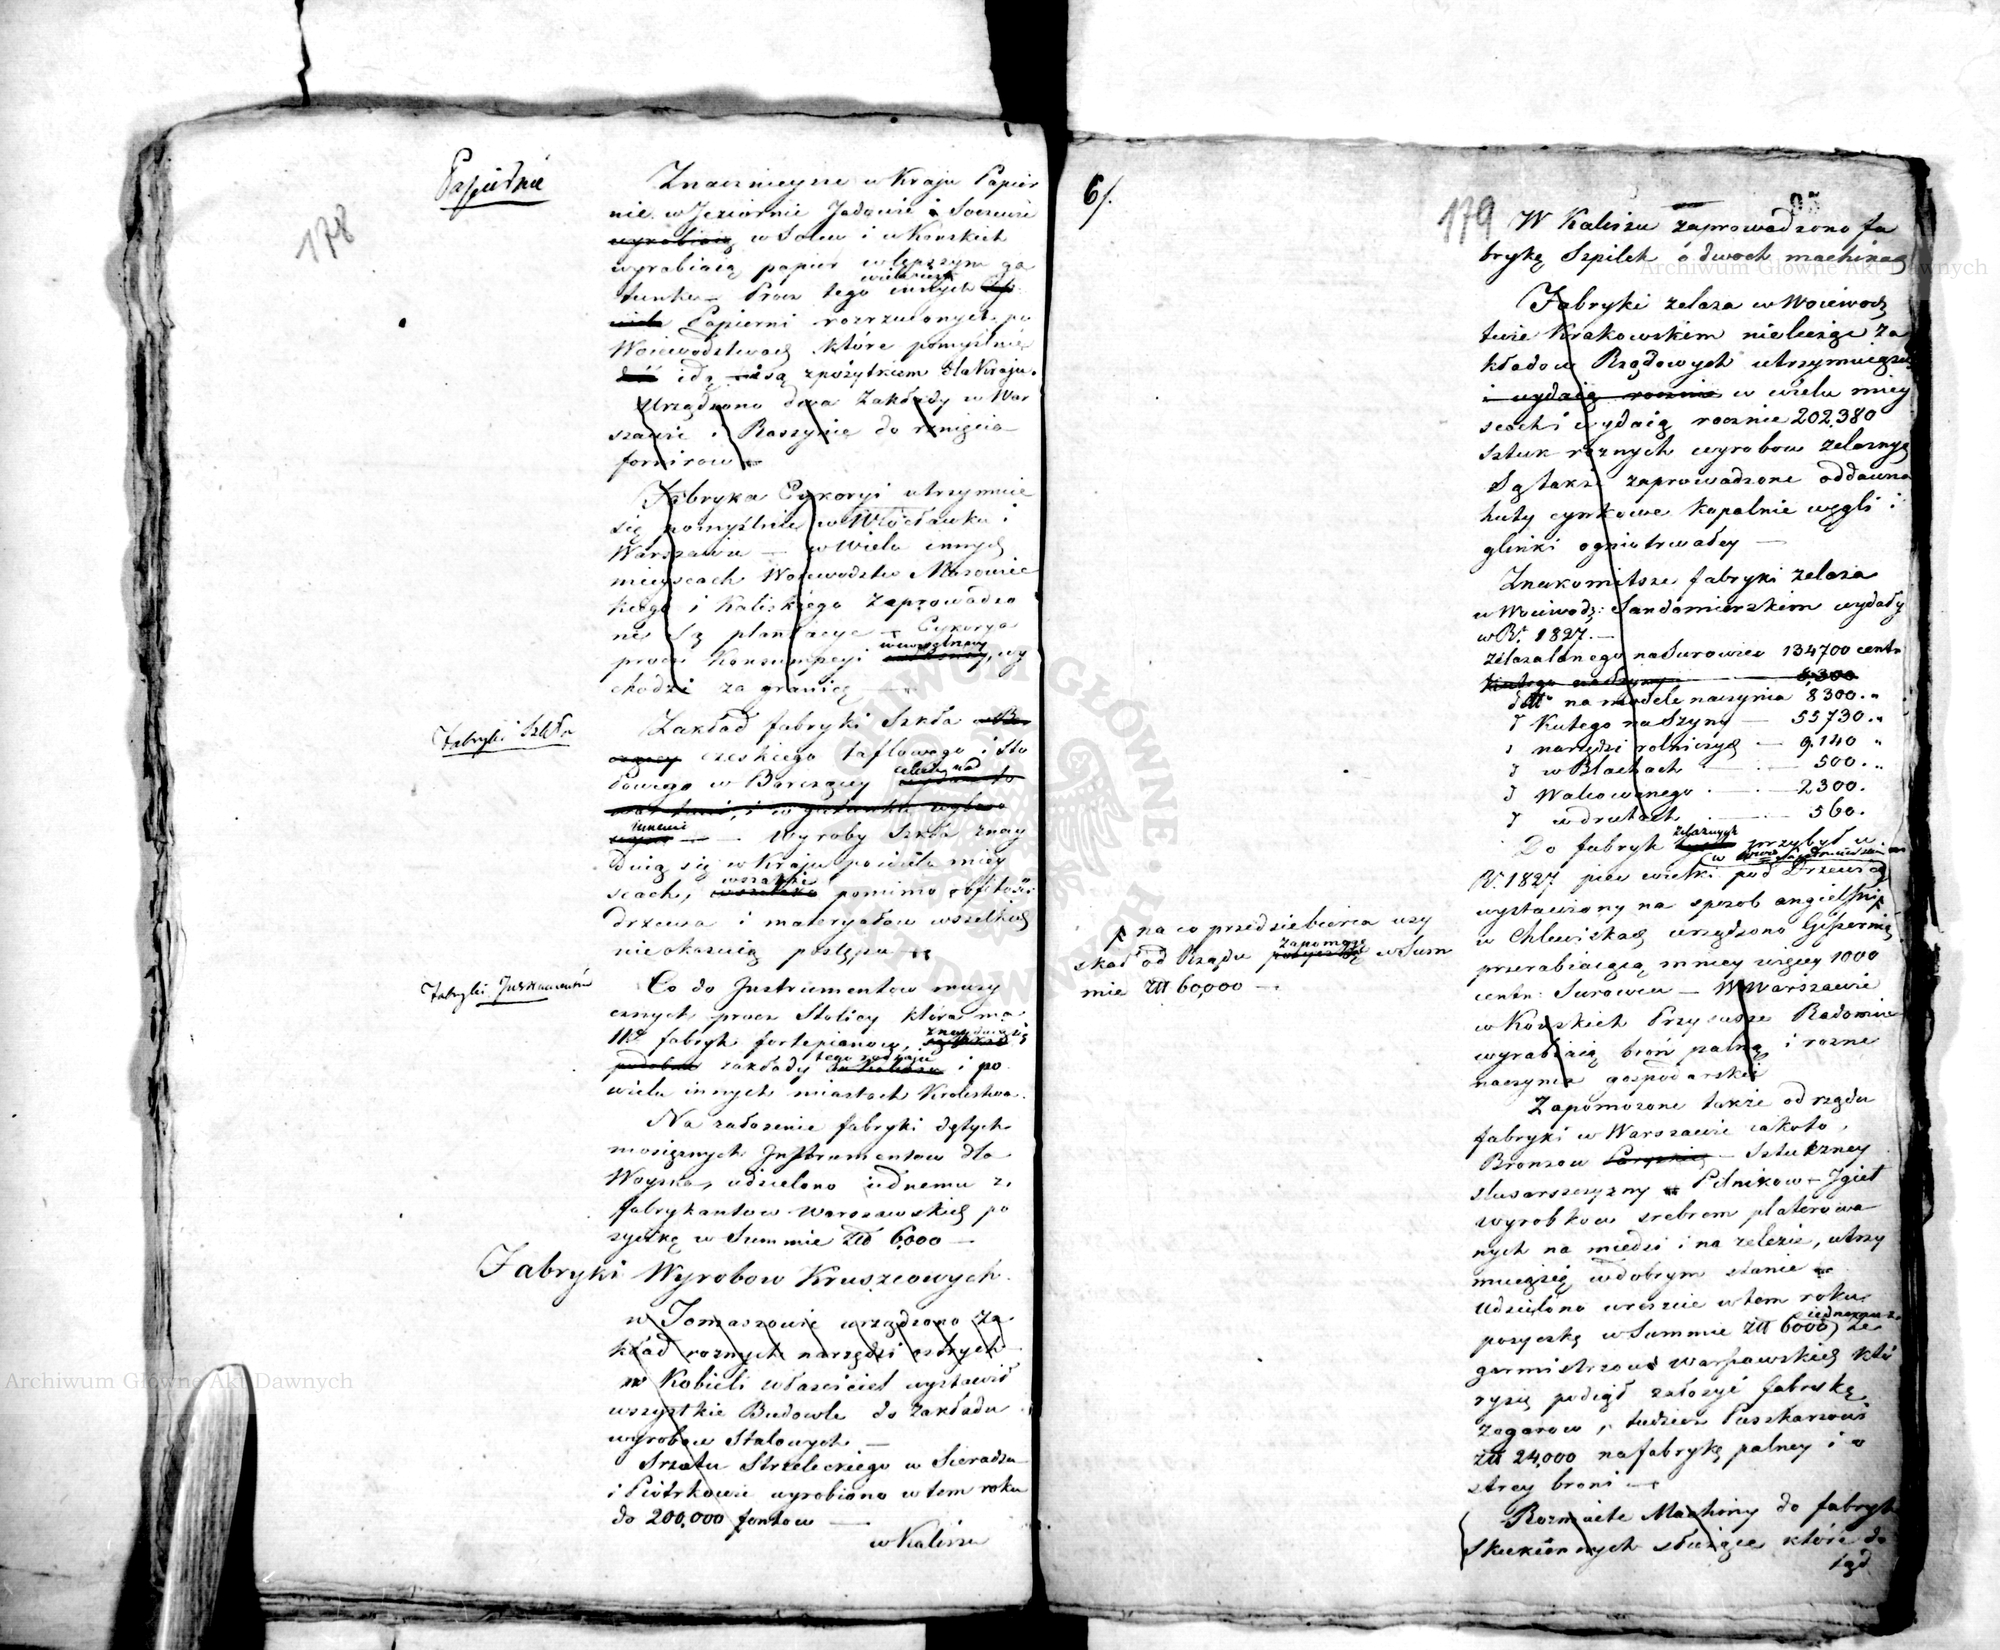 178
Papiernie
Znacznieysze w Kraju Papier
nie w Jeziornie Jadowie i Soczewie
wyrabiaią w Solcu i w Konskich
wyrabiaią papier w lepszym ga
tunku — Procz tego innych
wielu
Papierni rozrzuconych po
Woiewodztwach które pomyślnie
idą i są z pożytkiem dla Kraju.
Urządzono dwa Zakłady w War
szawie i Raszynie do rznięcia
fornirow —
Fabryka Cykoryi utrzymuie
się pomyślnie w Włocławku i
Warszawie — w wielu innych
mieyscach Woiewodztw Mazowiec
kiego i Kaliskiego zaprowadzo
ne są plantacye — Cykorya
procz Konsumpcyi wewnętrzney, wy
chodzi za granicę —
Fabryki Szkła
Zakład fabryki Szkła
czeskiego taflowego i sto
łowego w Barczącey celuie nad
innemi — Wyroby Szkła znay
duią się w Kraju po wielu miey
scach, wszakże pomimo obfitości
drzewa i materyałow wszelkich
nie okazuią postępu —
Fabryki Instrumentów
Co do Instrumentow muzy
cznych procz Stolicy która ma
11 fabryk fortepianow, znayduią się
zakłady tego rodzaju i po
wielu innych miastach Krolestwa.
Na założenie fabryki dętych
mosiężnych Instrumentow dla
Woyska, udzielono iednemu z
fabrykantow warszawskich po
życzkę w Summie Złł 6,000 —
Fabryki Wyrobow Kruszcowych.
w Tomaszowie urządzono Za
kład roznych narzędzi ostrych
w Kobieli właściciel wystawił
wszystkie Budowle do zakładu
wyrobow Stalowych —
Srzotu Strzeleckiego w Sieradzu
i Piotrkowie wyrobiono w tem roku
do 200,000 funtow —
w Kaliszu
6/.
179
95
W Kaliszu zaprowadzono fa
brykę Szpilek o dwoch machinach
Fabryki żelaza w Woiewodz
twie Krakowskim nie licząc za
kładow Rządowych utrzymuią się
i wydaią rocznie w wielu miey
scach i wydaią rocznie 202,380
sztuk roznych wyrobow żelaznych
Są także zaprowadzone oddawna
huty cynkowe kopalnie węgli i
glinki ogniotrwałey —
Znakomitsze fabryki żelaza
w Woiewodz: Sandomierskiem wydały
w R. 1827. —
Żelaza lanego na Surowiec 134700 centn
8,300
dtto na modele naczynia 8300. "
d Kutego na Szyny — 55730. "
d narzędzi rolniczych — 9,140 "
d w Blachach — 500. "
d Walcowanego — 2300.
d w drutach — 560.
Do fabryk żelaznych przybył w
R. 1827 piec wielki pod Drzewicą
wystawiony na sposob angielski
w Chlewiskach urządzono Gisernię
przerabiaiącą mniey więcey 1000
centn: Surowcu — W Warszawie
w Konskich Przysusze Radomiu
wyrabiaią broń palną i rozne
naczynia gospodarskie
na co przedsiebiorca uzy
skał od Rządu zapomogę w Sum
mie Złł 60,000 —
Zapomożone także od rządu
fabryki w Warszawie iakoto,
Bronzow Paryskich — Sztuczney
slusarszczyzny — Pilnikow — Igieł
wyrobkow srebrem platerowa
nych na miedzi i na żelezie, utrzy
muią się w dobrym stanie —
Udzielono wreszcie w tem roku
pożyczkę w Summie Złł 6000 iednemu z Ze
garmistrzow Warszawskich któ
ry się podiął założyć fabrykę
Zegarow, tudzież Puszkarzowi
Złł 24,000 na fabrykę palney i o
strey broni —
Rozmaite Machiny do fabryk
Sukiennych służące które do
tąd